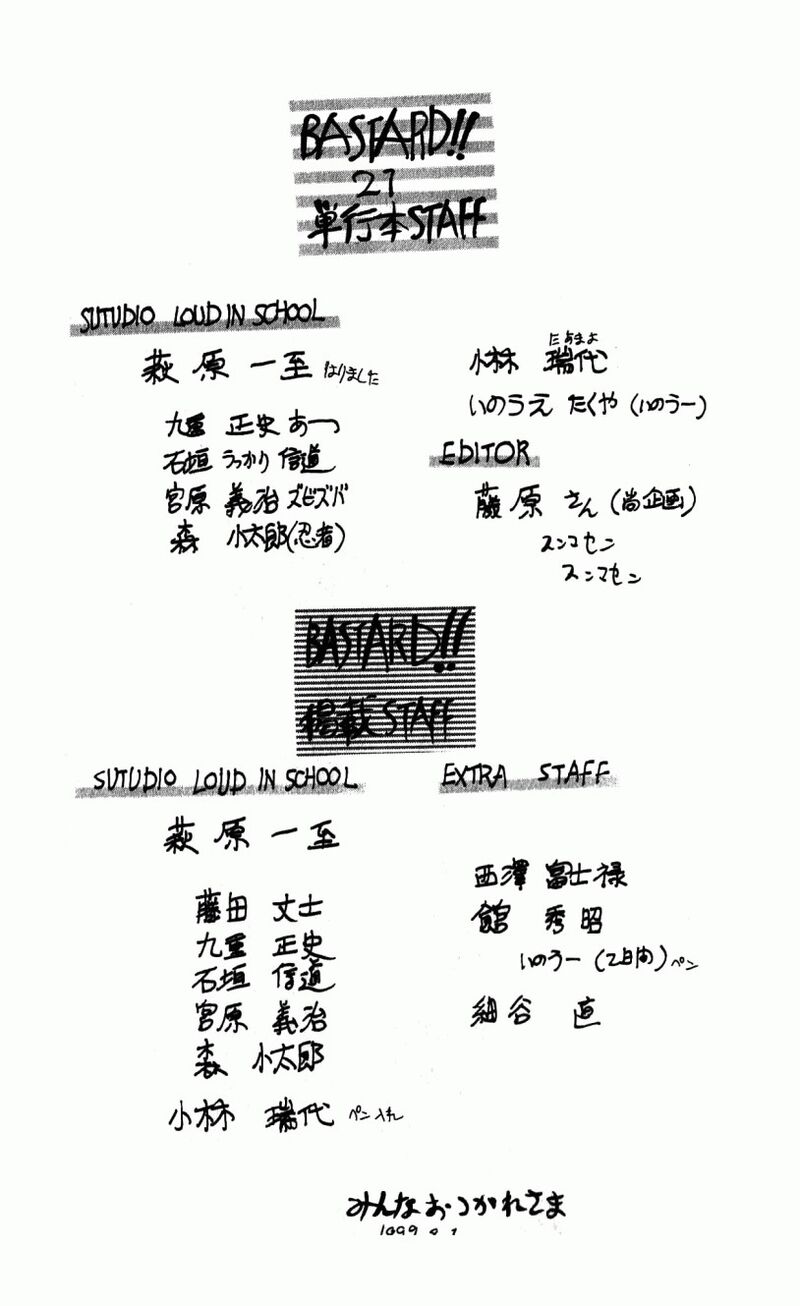 BASTARD!!
21
単行本STAFF
SUTUDIO LOUD IN SCHOOL
萩原 一至 はりました
九重 正史 あーっ
石垣 うっかり 信道
宮原 義治 ズビズバ
森 小太郎(忍者)
小林 瑞代
いのうえ たくや (いのうー)
EDITOR
藤原 さん (尚企画)
スンマセン
スンマセン
BASTARD!!
掲載STAFF
SUTUDIO LOUD IN SCHOOL
萩原 一至
藤田 丈士
九重 正史
石垣 信道
宮原 義治
森 小太郎
小林 瑞代 ペン入れ
EXTRA STAFF
西澤 富士禄
館 秀昭
いのうー (2日間) ペン
細谷 直
みんなおつかれさま